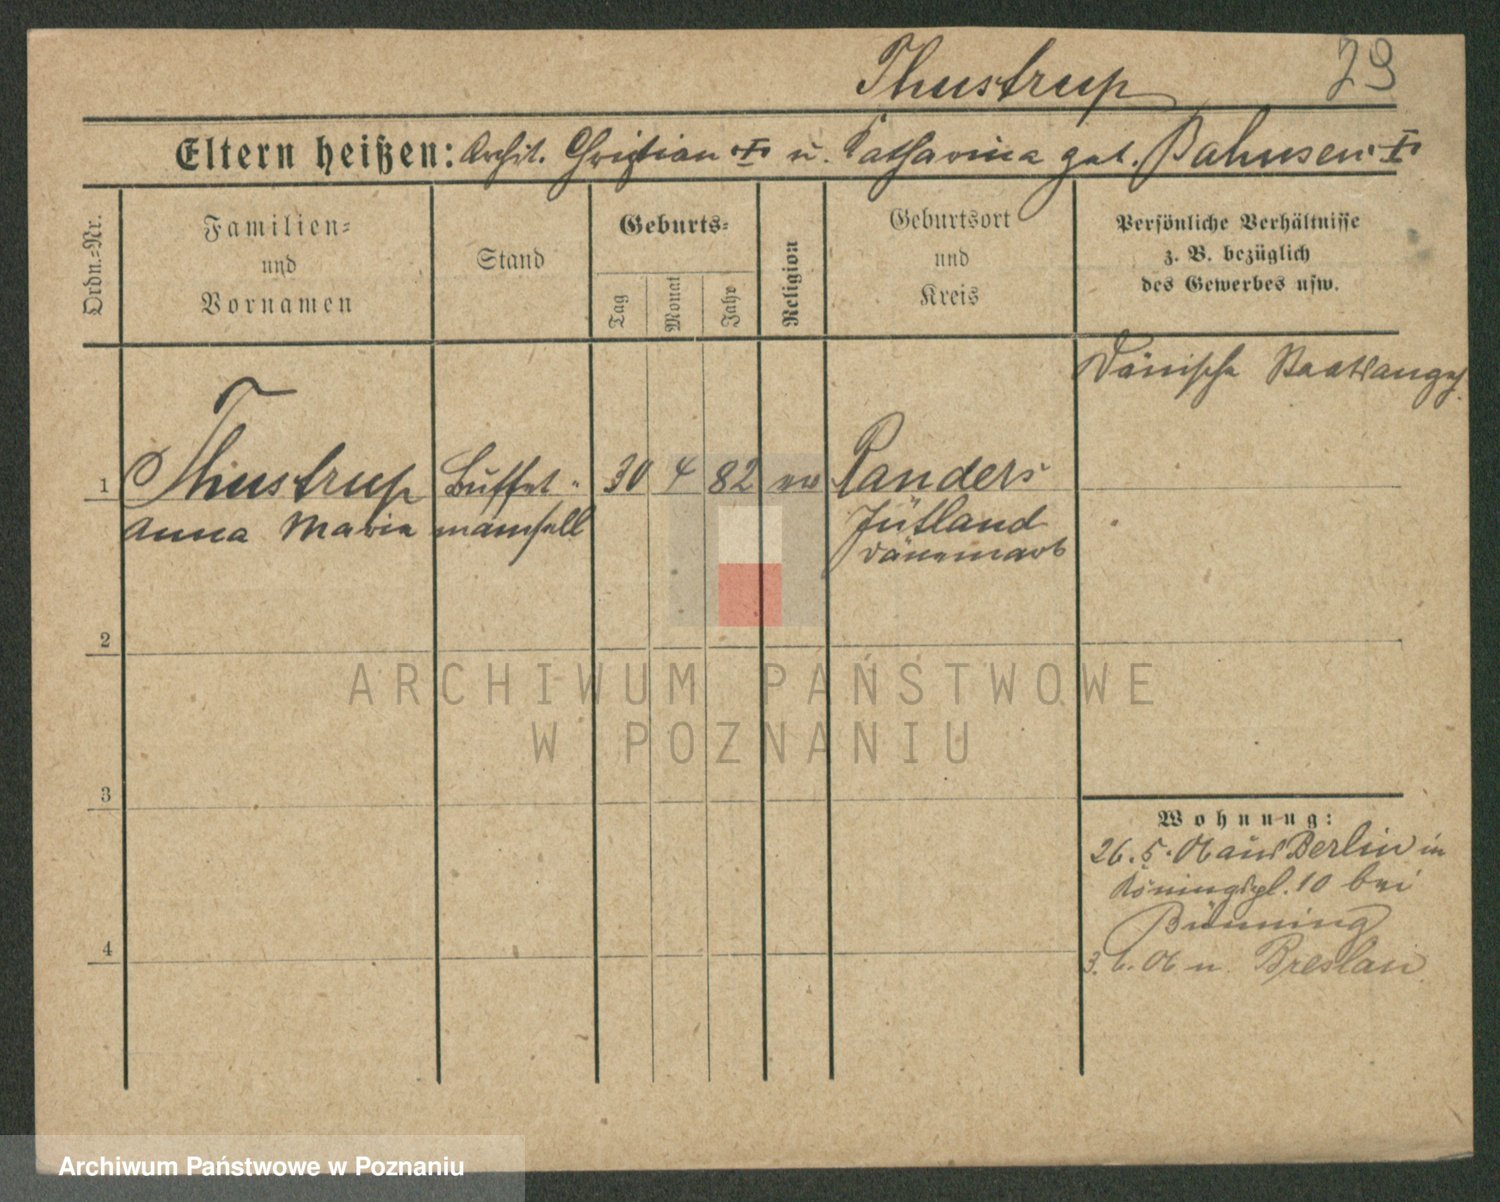 Thustrup
79
Eltern heißen: Archit. Christian † u. Katharina geb. Bahnsen †
Ordn.-Nr.
Familien-
und
Vornamen
Stand
Geburts-
Tag
Monat
Jahr
Religion
Geburtsort
und
Kreis
Persönliche Verhältnisse
z. B. bezüglich
des Gewerbes usw.
Dänische Staatsangeh.
1
Thustrup
Anna Marie
Buffet-
mamsell
30
4
82
ev
Randers
Jütland
Dänemark
2
3
4
Wohnung:
26. 5. 06 aus Berlin in
Königspl. 10 bei
Bünning
3. 6. 06 n. Breslau
ARCHIWUM PAŃSTWOWE
W POZNANIU
Archiwum Państwowe w Poznaniu